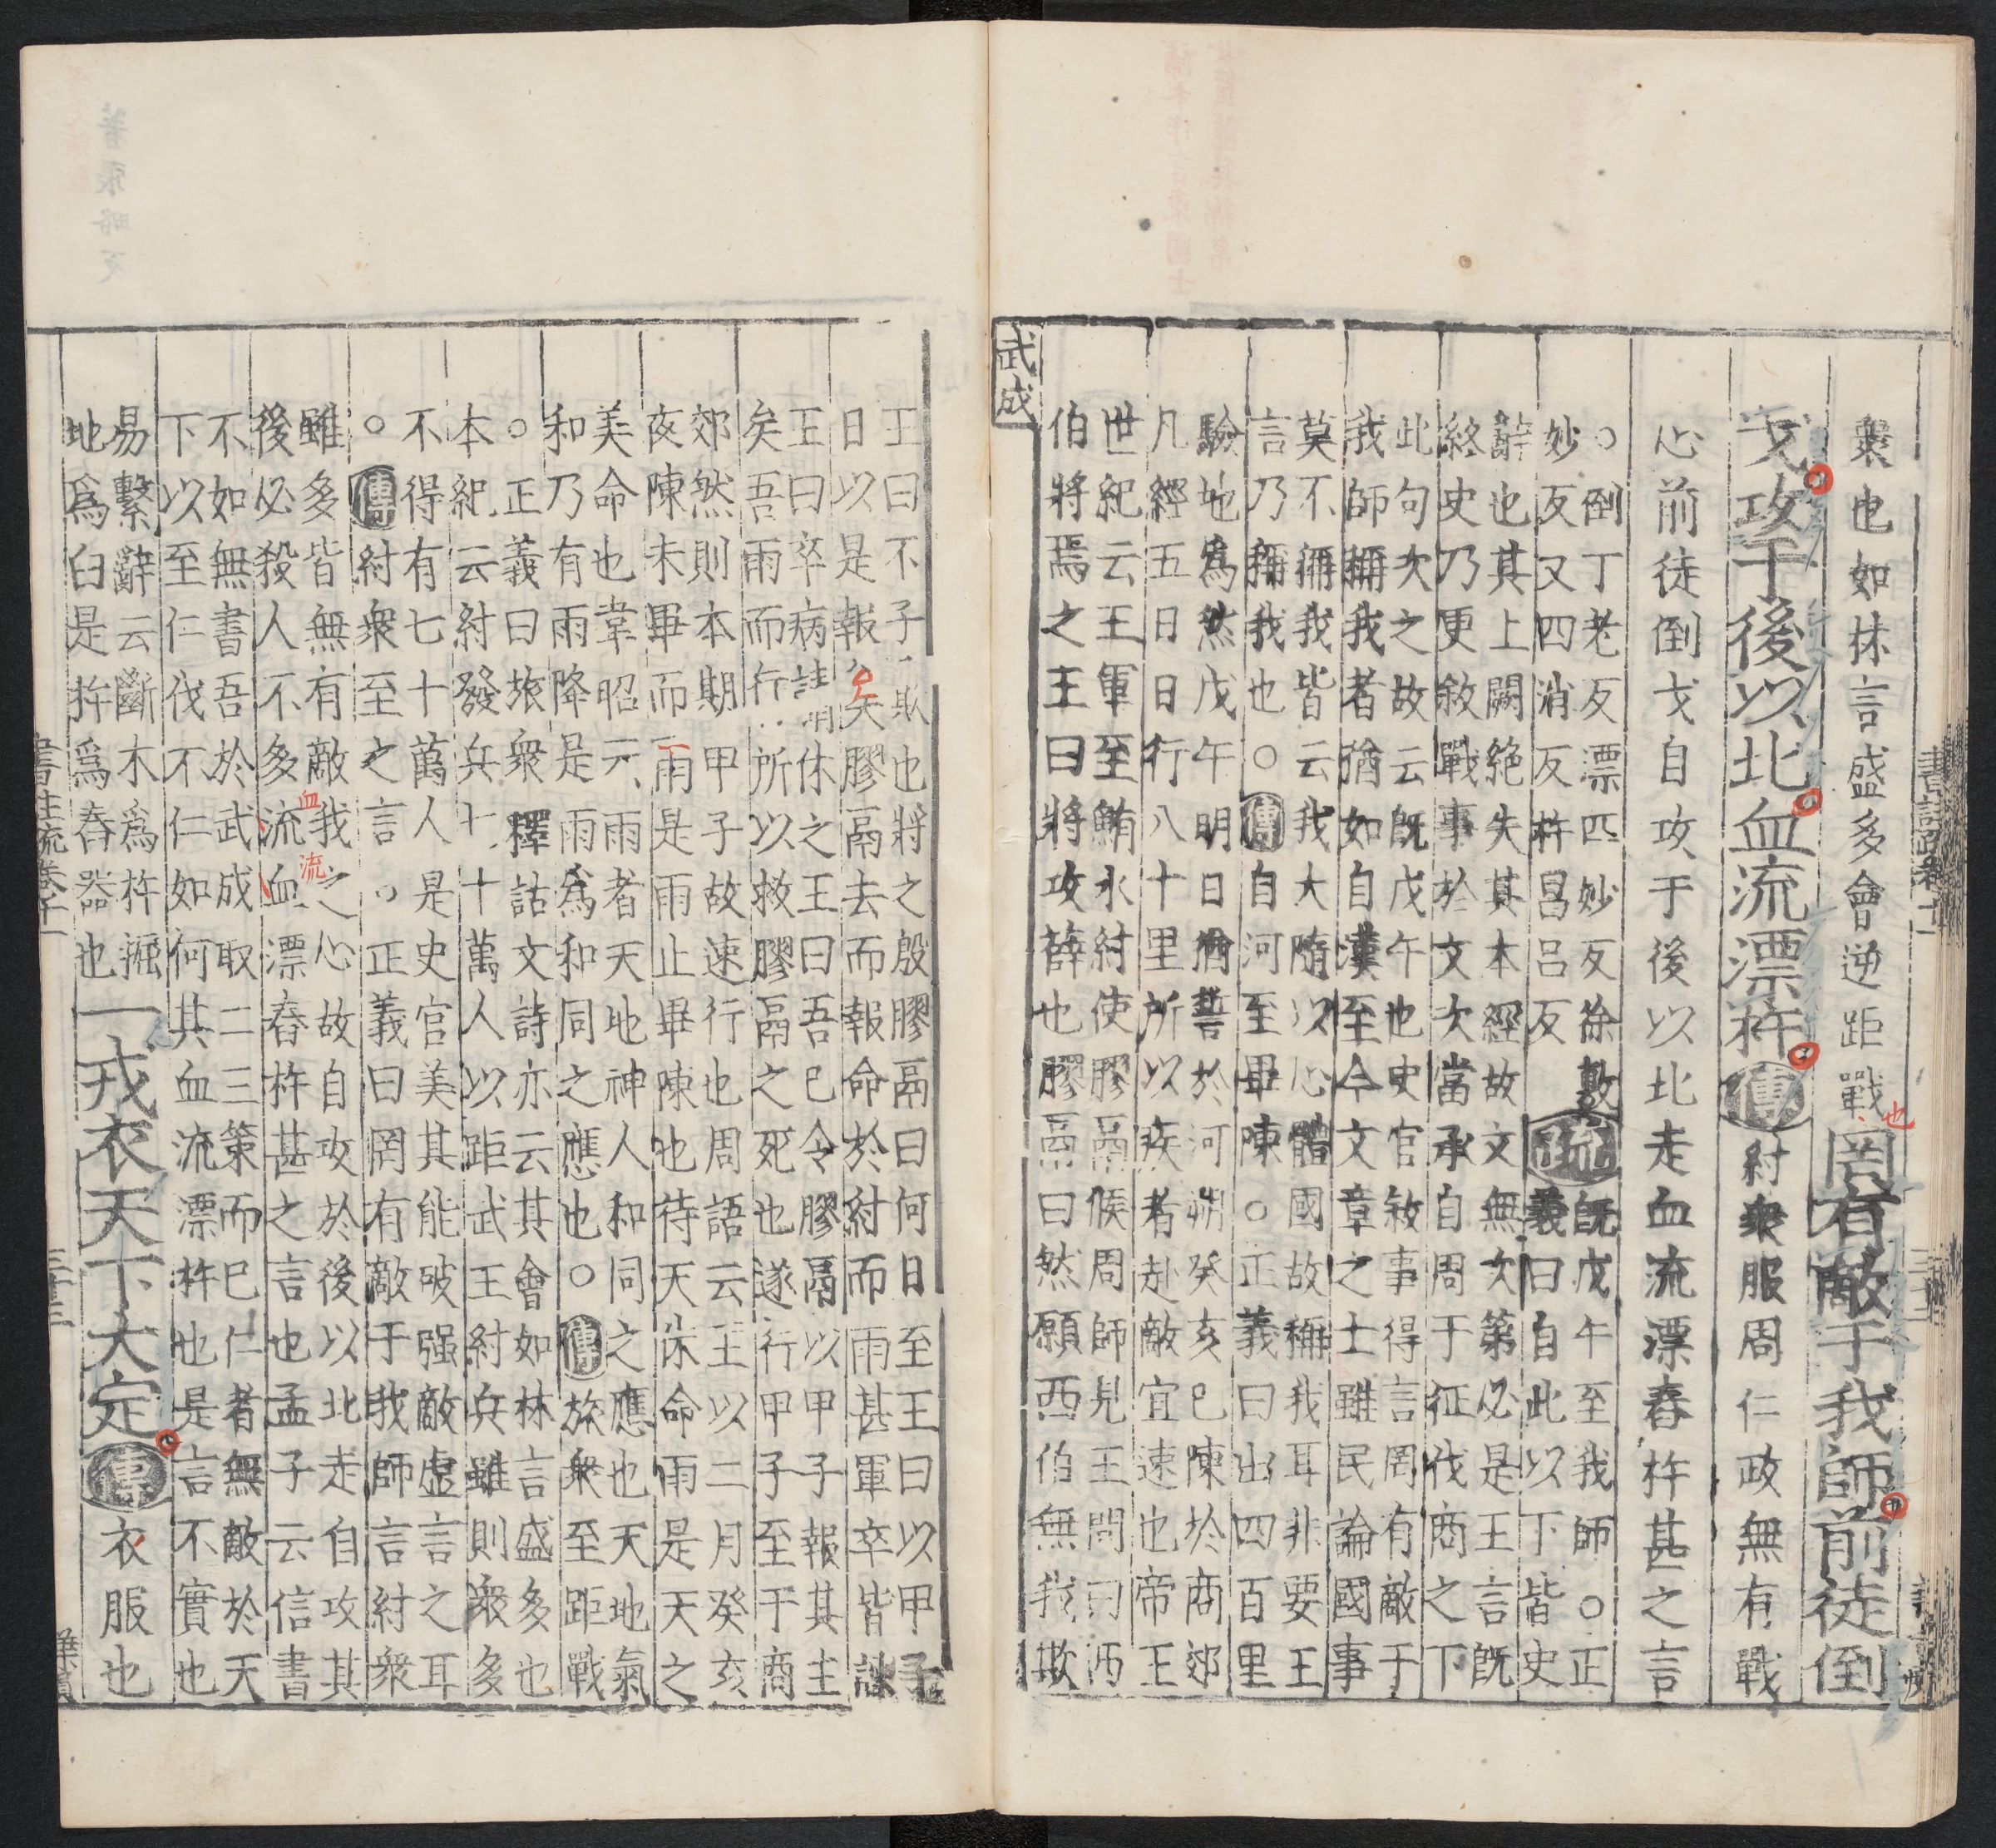 書註疏卷十一
三十二
衆也如林言盛多會逆距戰也罔有敵于我師前徒倒
戈攻于後以北血流漂杵傳紂衆服周仁政無有戰
心前徒倒戈自攻于後以北走血流漂舂杵甚之言
○倒丁老反漂匹妙反徐敷疏既戊午至我師○正
妙反又四消反杵昌呂反義曰自此以下皆史
辭也其上闕絶失其本經故文無次第必是王言既
終史乃更敘戰事於文次當承自周于征伐商之下
此句次之故云既戊午也史官敘事得言罔有敵于
我師稱我者猶如自漢至今文章之士雖民論國事
莫不稱我皆云我大隨以心體國故稱我耳非要王
言乃稱我也○傳自河至畢陳○正義曰出四百里
驗地爲然戊午明日猶誓於河朔癸亥已陳於商郊
凡經五日日行八十里所以疾者赴敵宜速也帝王
世紀云王軍至鮪水紂使膠鬲候周師見王問曰西
伯將焉之王曰將攻薛也膠鬲曰然願西伯無我欺
武成
王曰不子欺也將之殷膠鬲曰何日至王曰以甲子
日以是報矣膠鬲去而報命於紂而雨甚軍卒皆諫
王曰卒病請休之王曰吾已令膠鬲以甲子報其主
矣吾雨而行所以救膠鬲之死也遂行甲子至于商
郊然則本期甲子故速行也周語云王以二月癸亥
夜陳未畢而雨是雨止畢陳也待天休命雨是天之
美命也韋昭云雨者天地神人和同之應也天地氣
和乃有雨降是雨爲和同之應也○傳旅衆至距戰
○正義曰旅衆釋詁文詩亦云其會如林言盛多也
本紀云紂發兵七十萬人以距武王紂兵雖則衆多
不得有七十萬人是史官美其能破强敵虛言之耳
○傳紂衆至之言○正義曰罔有敵于我師言紂衆
雖多皆無有敵我之心故自攻於後以北走自攻其
血流
後必殺人不多流血漂舂杵甚之言也孟子云信書
不如無書吾於武成取二三策而已仁者無敵於天
下以至仁伐不仁如何其血流漂杵也是言不實也
易繫辭云斷木爲杵掘
地爲臼是杵爲舂器也
一戎衣天下大定傳衣服也
書註疏卷十一
三十二